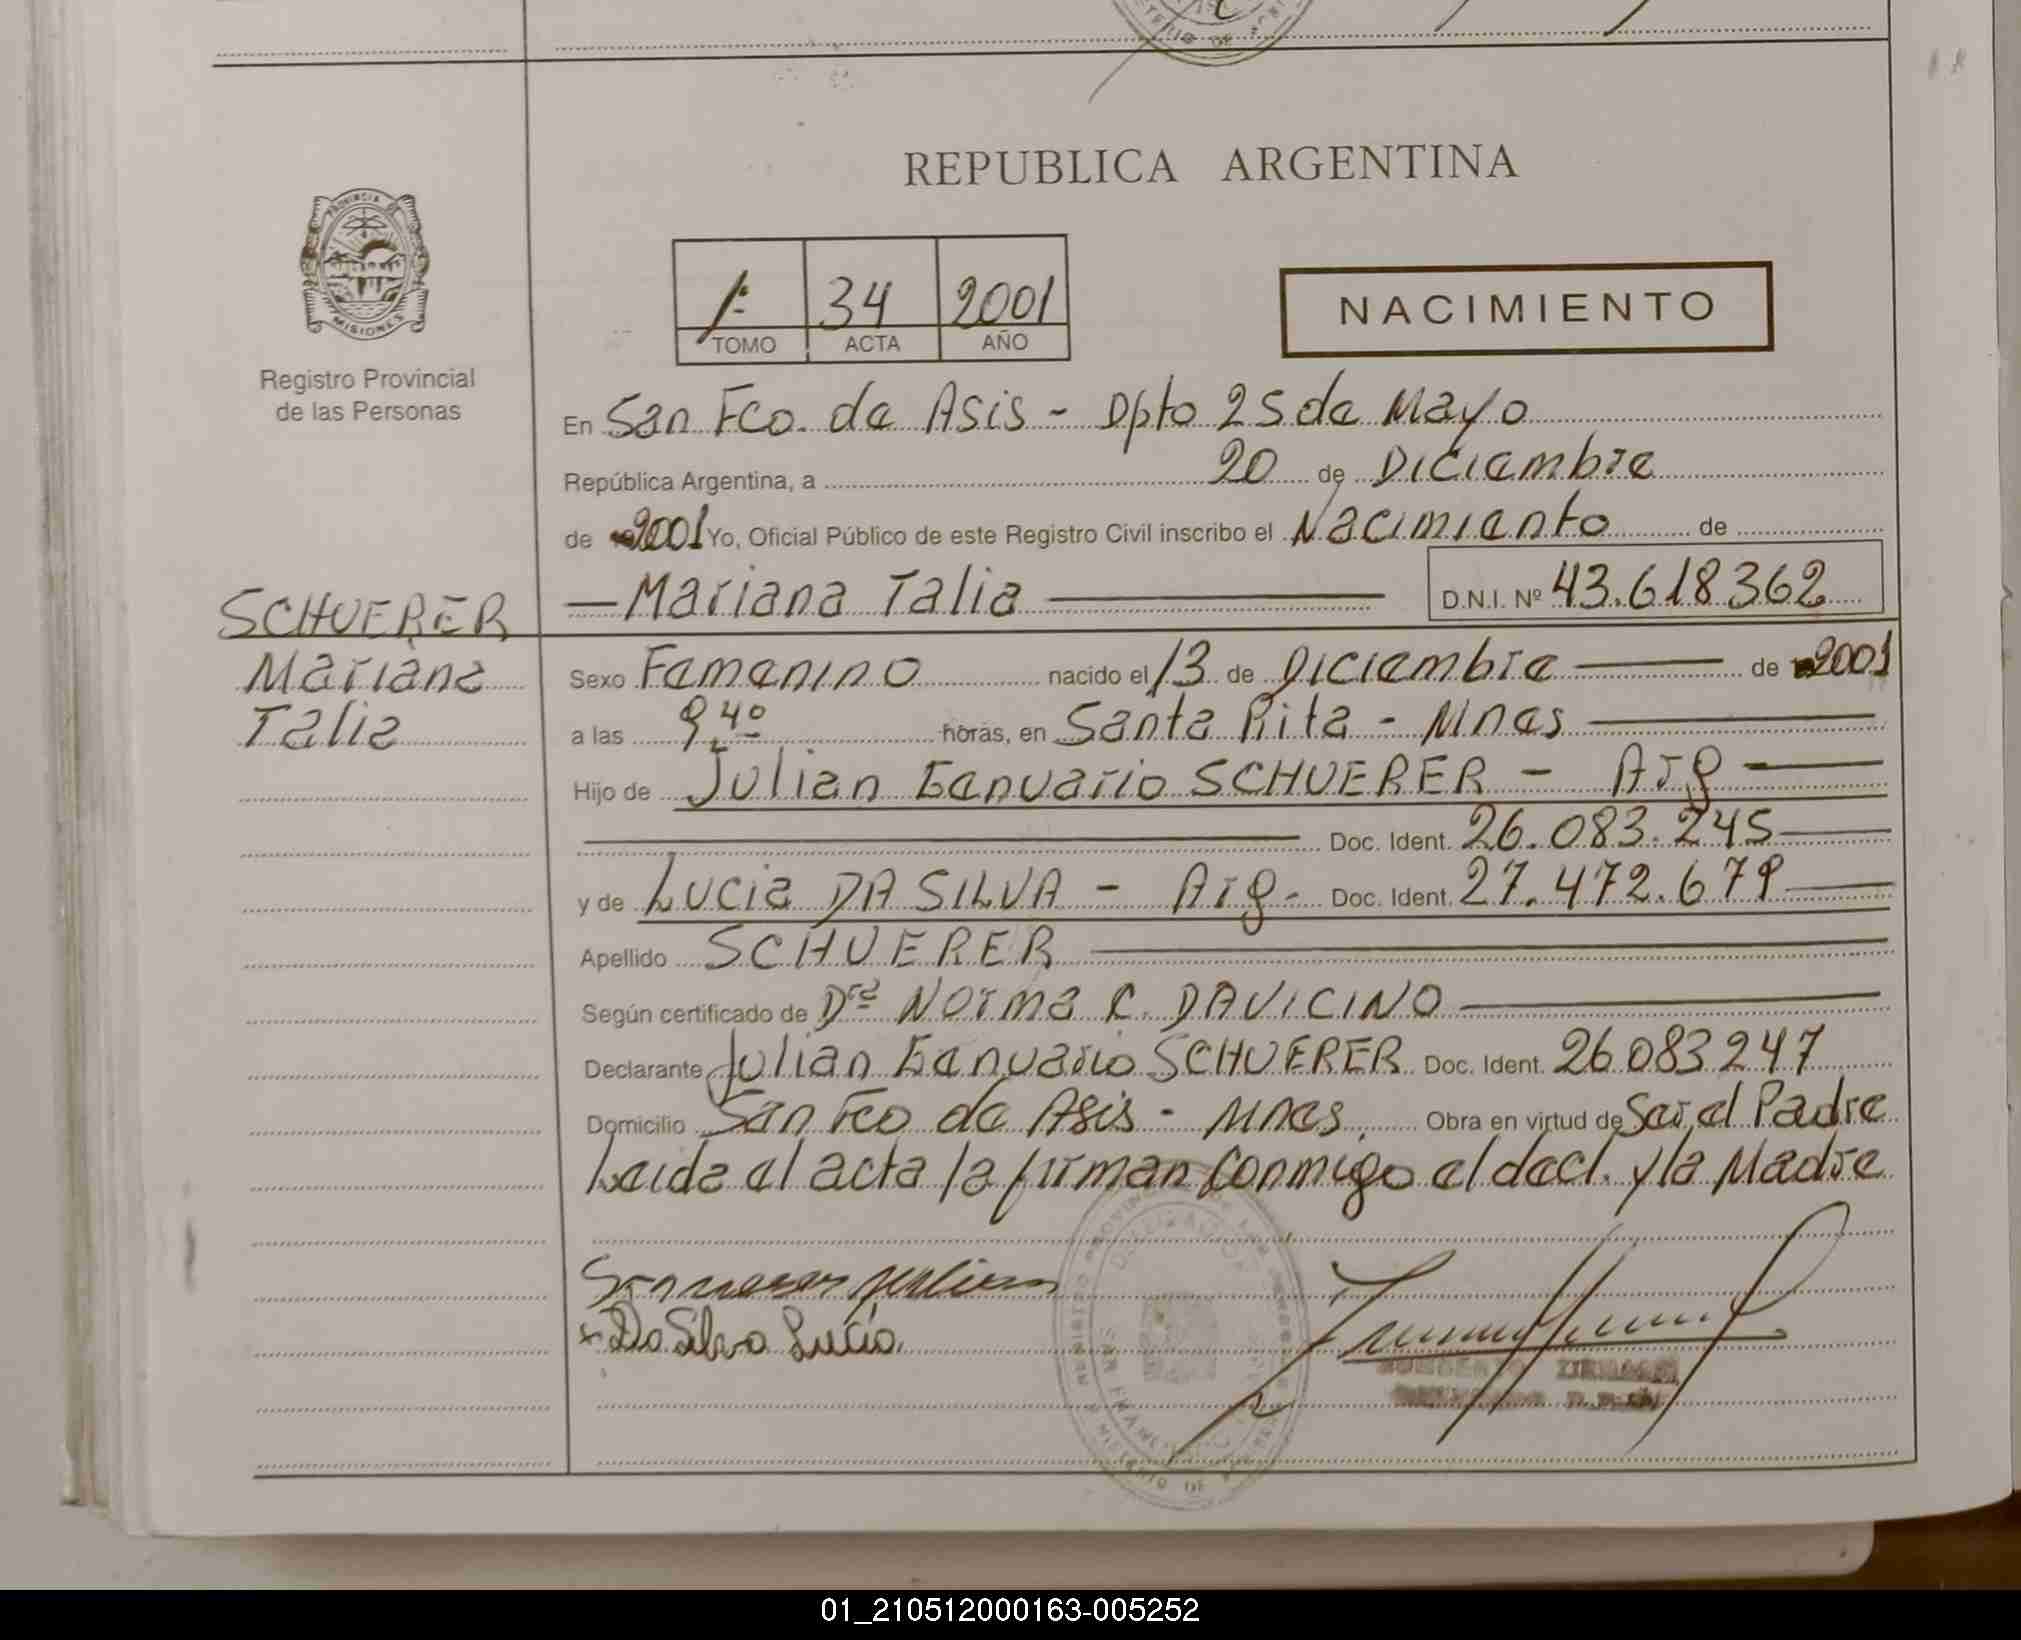 REPUBLICA ARGENTINA
PROVINCIA DE
MISIONES
Registro Provincial
de las Personas
1º 34 2001
TOMO ACTA AÑO
NACIMIENTO
En San Fco. de Asis - Dpto 25 de Mayo
República Argentina, a 20 de Diciembre
de 2001 Yo, Oficial Público de este Registro Civil inscribo el Nacimiento de
Mariana Talia D.N.I. Nº 43.618.362
SCHUERER
Mariana
Talia
Sexo Femenino nacido el 13 de Diciembre de 2001
a las 9,40 horas, en Santa Rita - Mnes
Hijo de Julian Genuario SCHUERER - Arg
Doc. Ident. 26.083.245
y de Lucia DA SILVA - Arg - Doc. Ident. 27.472.679
Apellido SCHUERER
Según certificado de Drª Norma C. DAVICINO
Declarante Julian Genuario SCHUERER Doc. Ident. 26083247
Domicilio San Fco de Asis - Mnes. Obra en virtud de Ser el Padre
Leida el acta la firman conmigo el decl. y la Madre
Da Silva Lucia
01_210512000163-005252